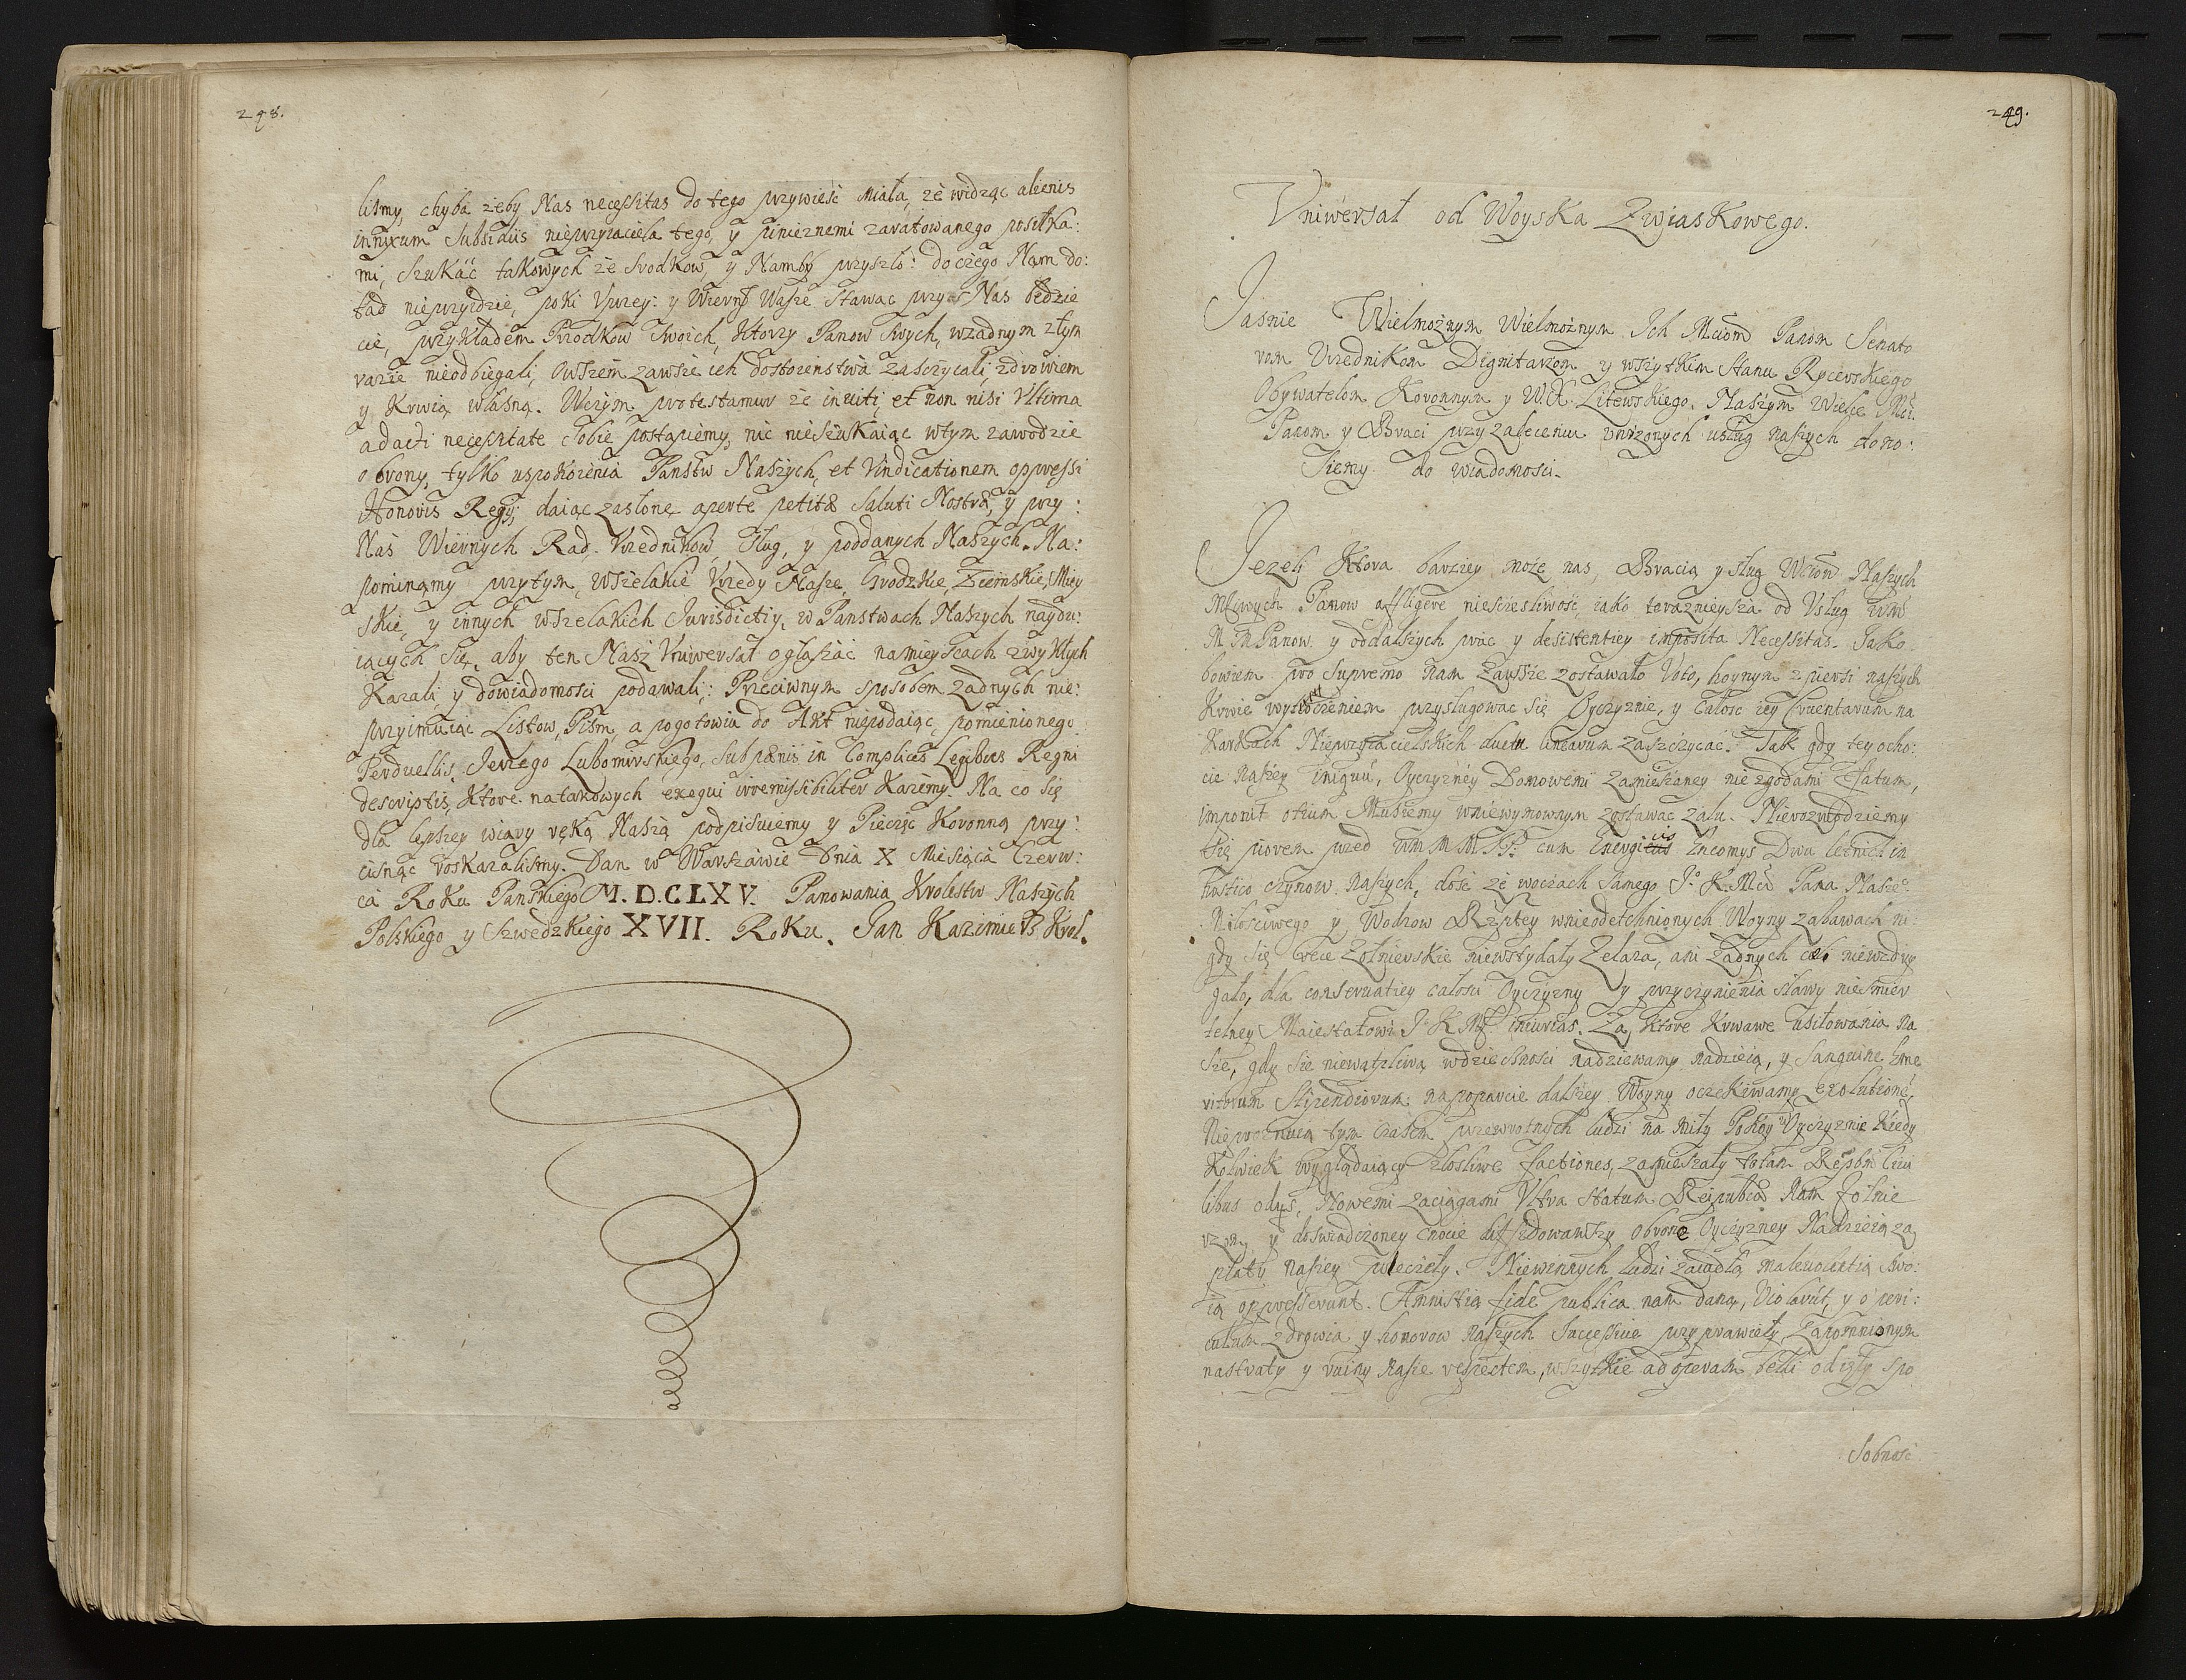 248.
lismy, chyba żeby Nas necessitas do tego przywieść miała, że widząc alienis
innixum Subsidiis nieprzyiaciela tego, y pinieznemi zaratowanego posiłka:
mi, szukać takowych że srodkow, y Namby przyszło: do czego Nam do:
tąd nieprzyidzie, poki Vprzey: y Wiern Wasze stawac przy Nas będzie
cie, przykładem Przodkow swoich, ktorzy Panow swych, wzadnym złym
razie nieodbiegali, owszem zawsze ich dostoienstwa zasczycali, zdrowiem
y Krwią własną. Wczym protestamur że inuiti, et non nisi Vltima
adacti necessitate Sobie postąpiemy, nic nieszukaiąc wtym zawodzie
obrony, tylko uspokoienia Panstw Naszych, et Vindicationem oppressi
Honoris Regij, daiąc zasłonę aperte petitæ Saluti Nostræ, y przy:
Nas Wiernych Rad. Vrzednikow, Sług, y poddanych Naszych. Na:
pominamy przytym, wszelakie Vrzedy Nasze, Grodzkie, Ziemskie, Miey
skie, y innych wszelakich Jurisdictiy, w Panstwach Naszych naydu:
iących się, aby ten Nasz Vniwersał ogłaszać namieyscach zwykłych
Kazali, y dowiadomosci podawali: Przeciwnym sposobem żadnych nie:
przyimuiąc Listow, Pism, a pogotowiu do Akt niepodaiąc, pomienionego
Perduellis Jerzego Lubomirskiego, sub pænis in Complices Legibus Regni
descriptis, Ktore natakowych exequi irremissibiliter Każemy. Na co się
dla lepszey wiary ręką Naszą podpisuiemy y Pieczęc Koronną przy:
cisnąc roskazalismy. Dan w Warszawie Dnia X Miesiąca Czerw:
ca Roku Panskiego M. D.CLXV. Panowania Krolestw Naszych
Polskiego y Szwedzkiego XVII. Roku. Jan Kazimierz Krol.
249.
Vniwersał od Woyska Zwiaskowego.
Jasnie Wielmożnym Wielmożnym Ich Mciom Panom Senato
rom Vrzednikom Dignitarzom y wszytkim Stanu Rycerskiego
Obywatelom Koronnym y W.X. Litewskiego. Naszym Wielce Mci.
Panom y Braci przy zaleceniu vnizonych usług naszych dono:
siemy do wiadomosci.
Jezeli Ktora barziey może nas, Bracią y sług Wciow Naszych
Mciwych Panow affligere niesczesliwość, iako terazniejsza od Vsług wm
M M Panow y oddalszych prac y desistentiey imposita Necessitas. Jako
bowiem pro supremo nam zawsze zostawało Voto, hoynym z piersi naszych
Krwie wytoczeniem przysługowac się Oyczyznie, y całosc iey Cruentarum na
Karkach Nieprzyiacielskich ductu linearum zaszczycać. Tak gdy tey ocho:
cie naszey iniquū, Oyczyzney Domowemi zamieszaney niezgodami Fatum,
imponit otium Musiemy wniewymownym zostawac żalu. Nierozwodziemy
się piorem przed wm M M P: cum Energicis Encomys Dwu letnich in
hostico czynow naszych, dość że woczach samego J° K. Mci Pana Nasze°
Miłosciwego y Wodzow Rzptey wnieodetchnionych Woyny zabawach ni
gdy się ręce Żołnierskie niewstydały Żelaza, ani żadnych niewzdry
gało, dla conseruatiey całosci Oyczyzny y przyczynienia sławy niesmier
telney Maiestatowi J° K Mći incurias. Za ktore Krwawe usiłowania Na
sze, gdy sie niewątpliwą wdziecznosci nadziewamy nadzieią, y Sanguine Eme
ritorum Stipendiorum na poparcie dalszey Woyny oczekiwamy Exolutionē,
tym czasem przewrotnych ludzi na miły Pokoy Oyczyznie Kiedy
Kolwiek wyglądaiący złosliwe factiones, zamieszały totam Rēpbm Ciui
libus odys, Nowemi zaciągami Vltra statum Reipubcæ Nam Żołnie
rzom y doswiadczoney cnocie diffidowawszy obronē Oyczyzney Nadzieią za
płaty naszey Niewinnych ludzi zawdłą maleuolentią swo:
ią oppresserunt. Amnistią fide publica nam daną, Violarūt, y o peri:
culum zdrowia y honorow naszych Successiue przyprawiely, Zapomnionym
nastraty y ruiny nasze respectem, wszytkie ad operam belli odięły spo
sobnosc